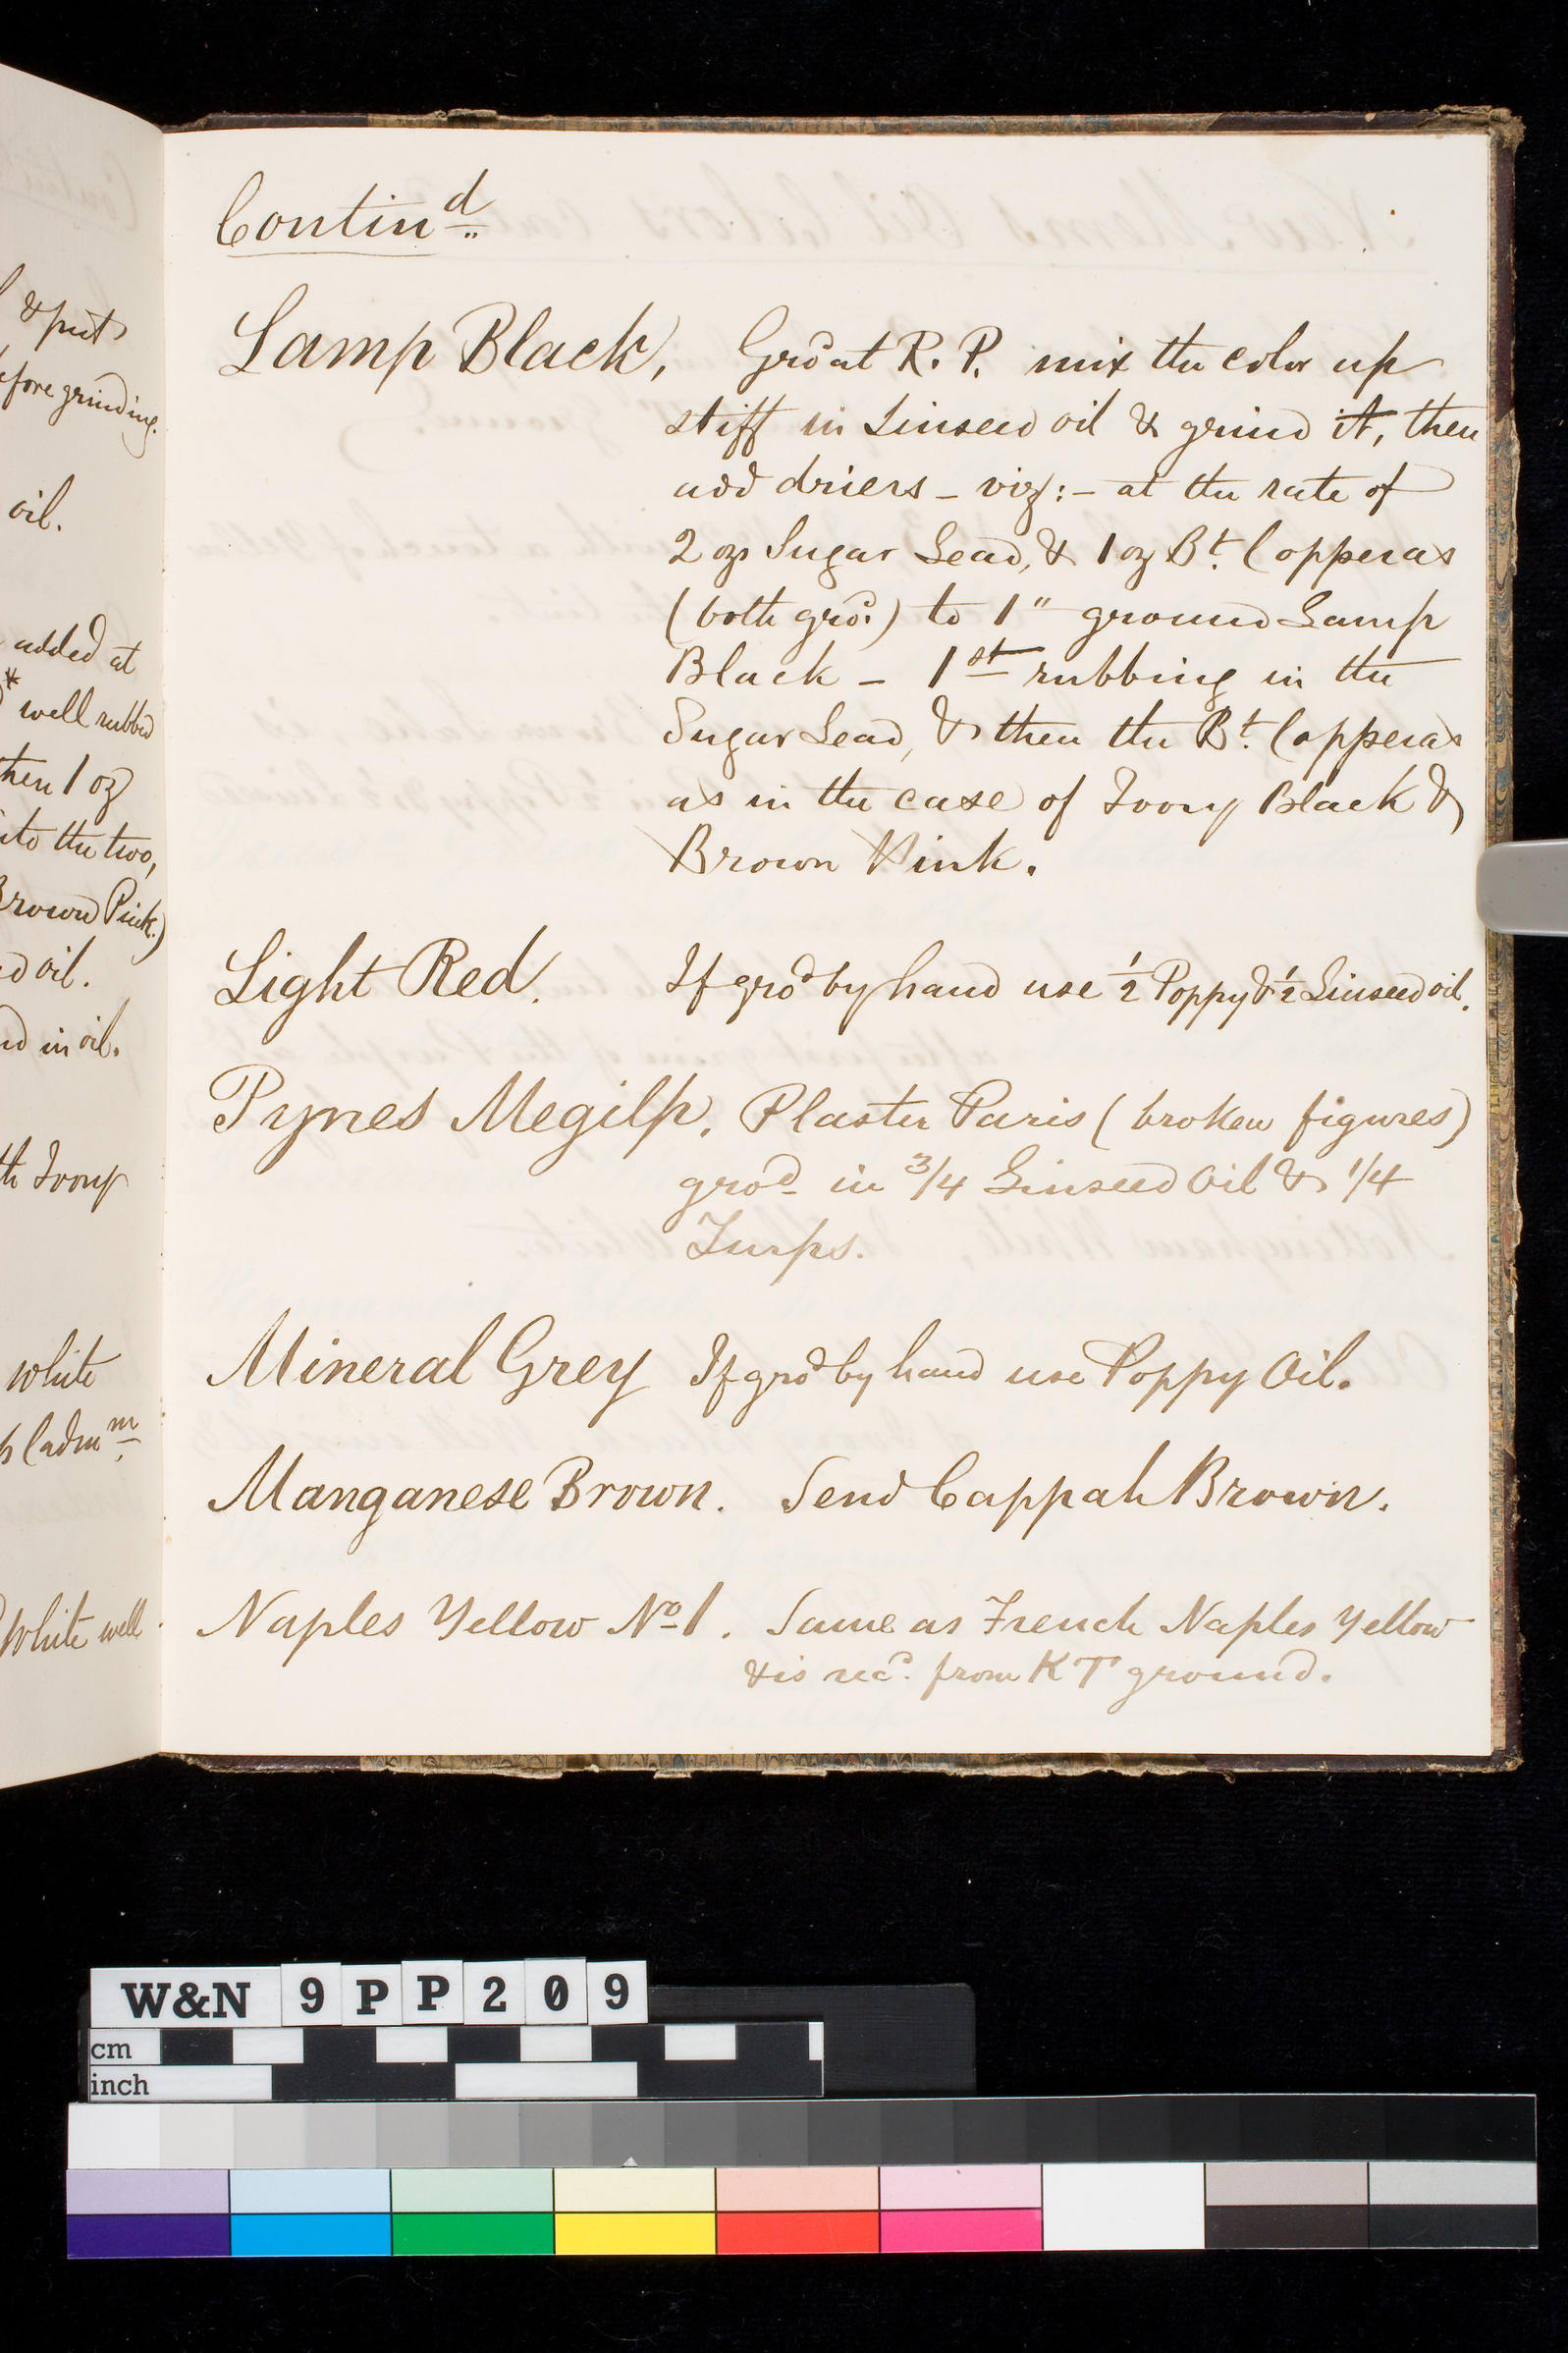 & put
efore grinding.
oil.
added at
*
well rubbed
then 1 oz
into the two,
Brown Pink.)
d oil.
d in oil.
th Ivory
white
Cadmm
white well
Contind
Lamp Black, Grd at R. P. mix the color up
stiff in Linseed oil & grind it, then
add driers – viz: – at the rate of
2 ozs Sugar Lead, & 1 oz Bt. Copperas
(both grod.) to 1" ground Lamp
Black – 1st rubbing in the
Sugar Lead, & then the Bt. Copperas
as in the case of Ivory Black &
Brown Pink.
Light Red. If grod by hand use ½ Poppy & ½ Linseed oil.
Pynes Megilp. Plaster Paris (broken figures)
grod in 3/4 Linseed Oil & 1/4
Turps.
Mineral Grey If grod by hand use Poppy Oil.
Manganese Brown. Send Cappah Brown.
Naples Yellow No 1. Same as French Naples Yellow
& is recd. from KT ground.
W&N 9PP209
cm
inch